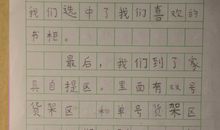 我们选中了我们喜欢的
书柜。
最后，我们到了家
具自提区。里面有双号
货架区 和单号货架区